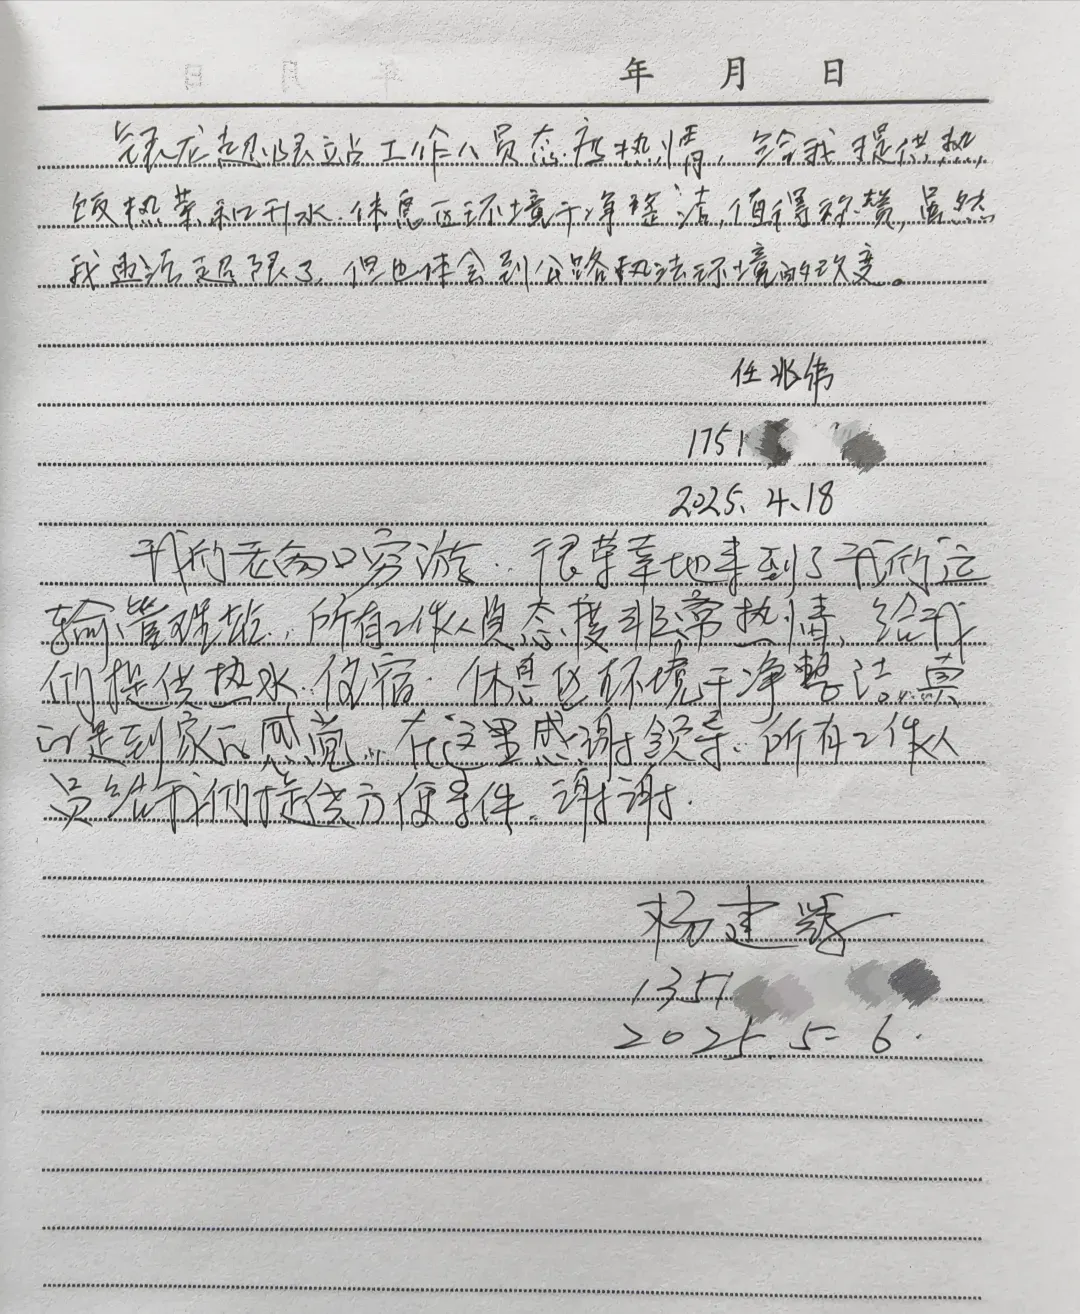 年 月 日
龙超限站工作人员态度热情，给我提供热
饭热菜和开水.休息区环境干净整洁,值得称赞,虽然
我违法超限了,但也体会到公路执法环境的改变。
任兆伟
1751
2025.4.18
我们老两口穷游..很荣幸地来到了我们运
输管理站,所有工作人员态度非常热情,给我
们提供热水.住宿.休息区环境干净整洁.真
的是到家的感觉...在这里感谢领导.所有工作人
员给我们提供方便条件.谢谢.
杨建
1351
2025.5-6.